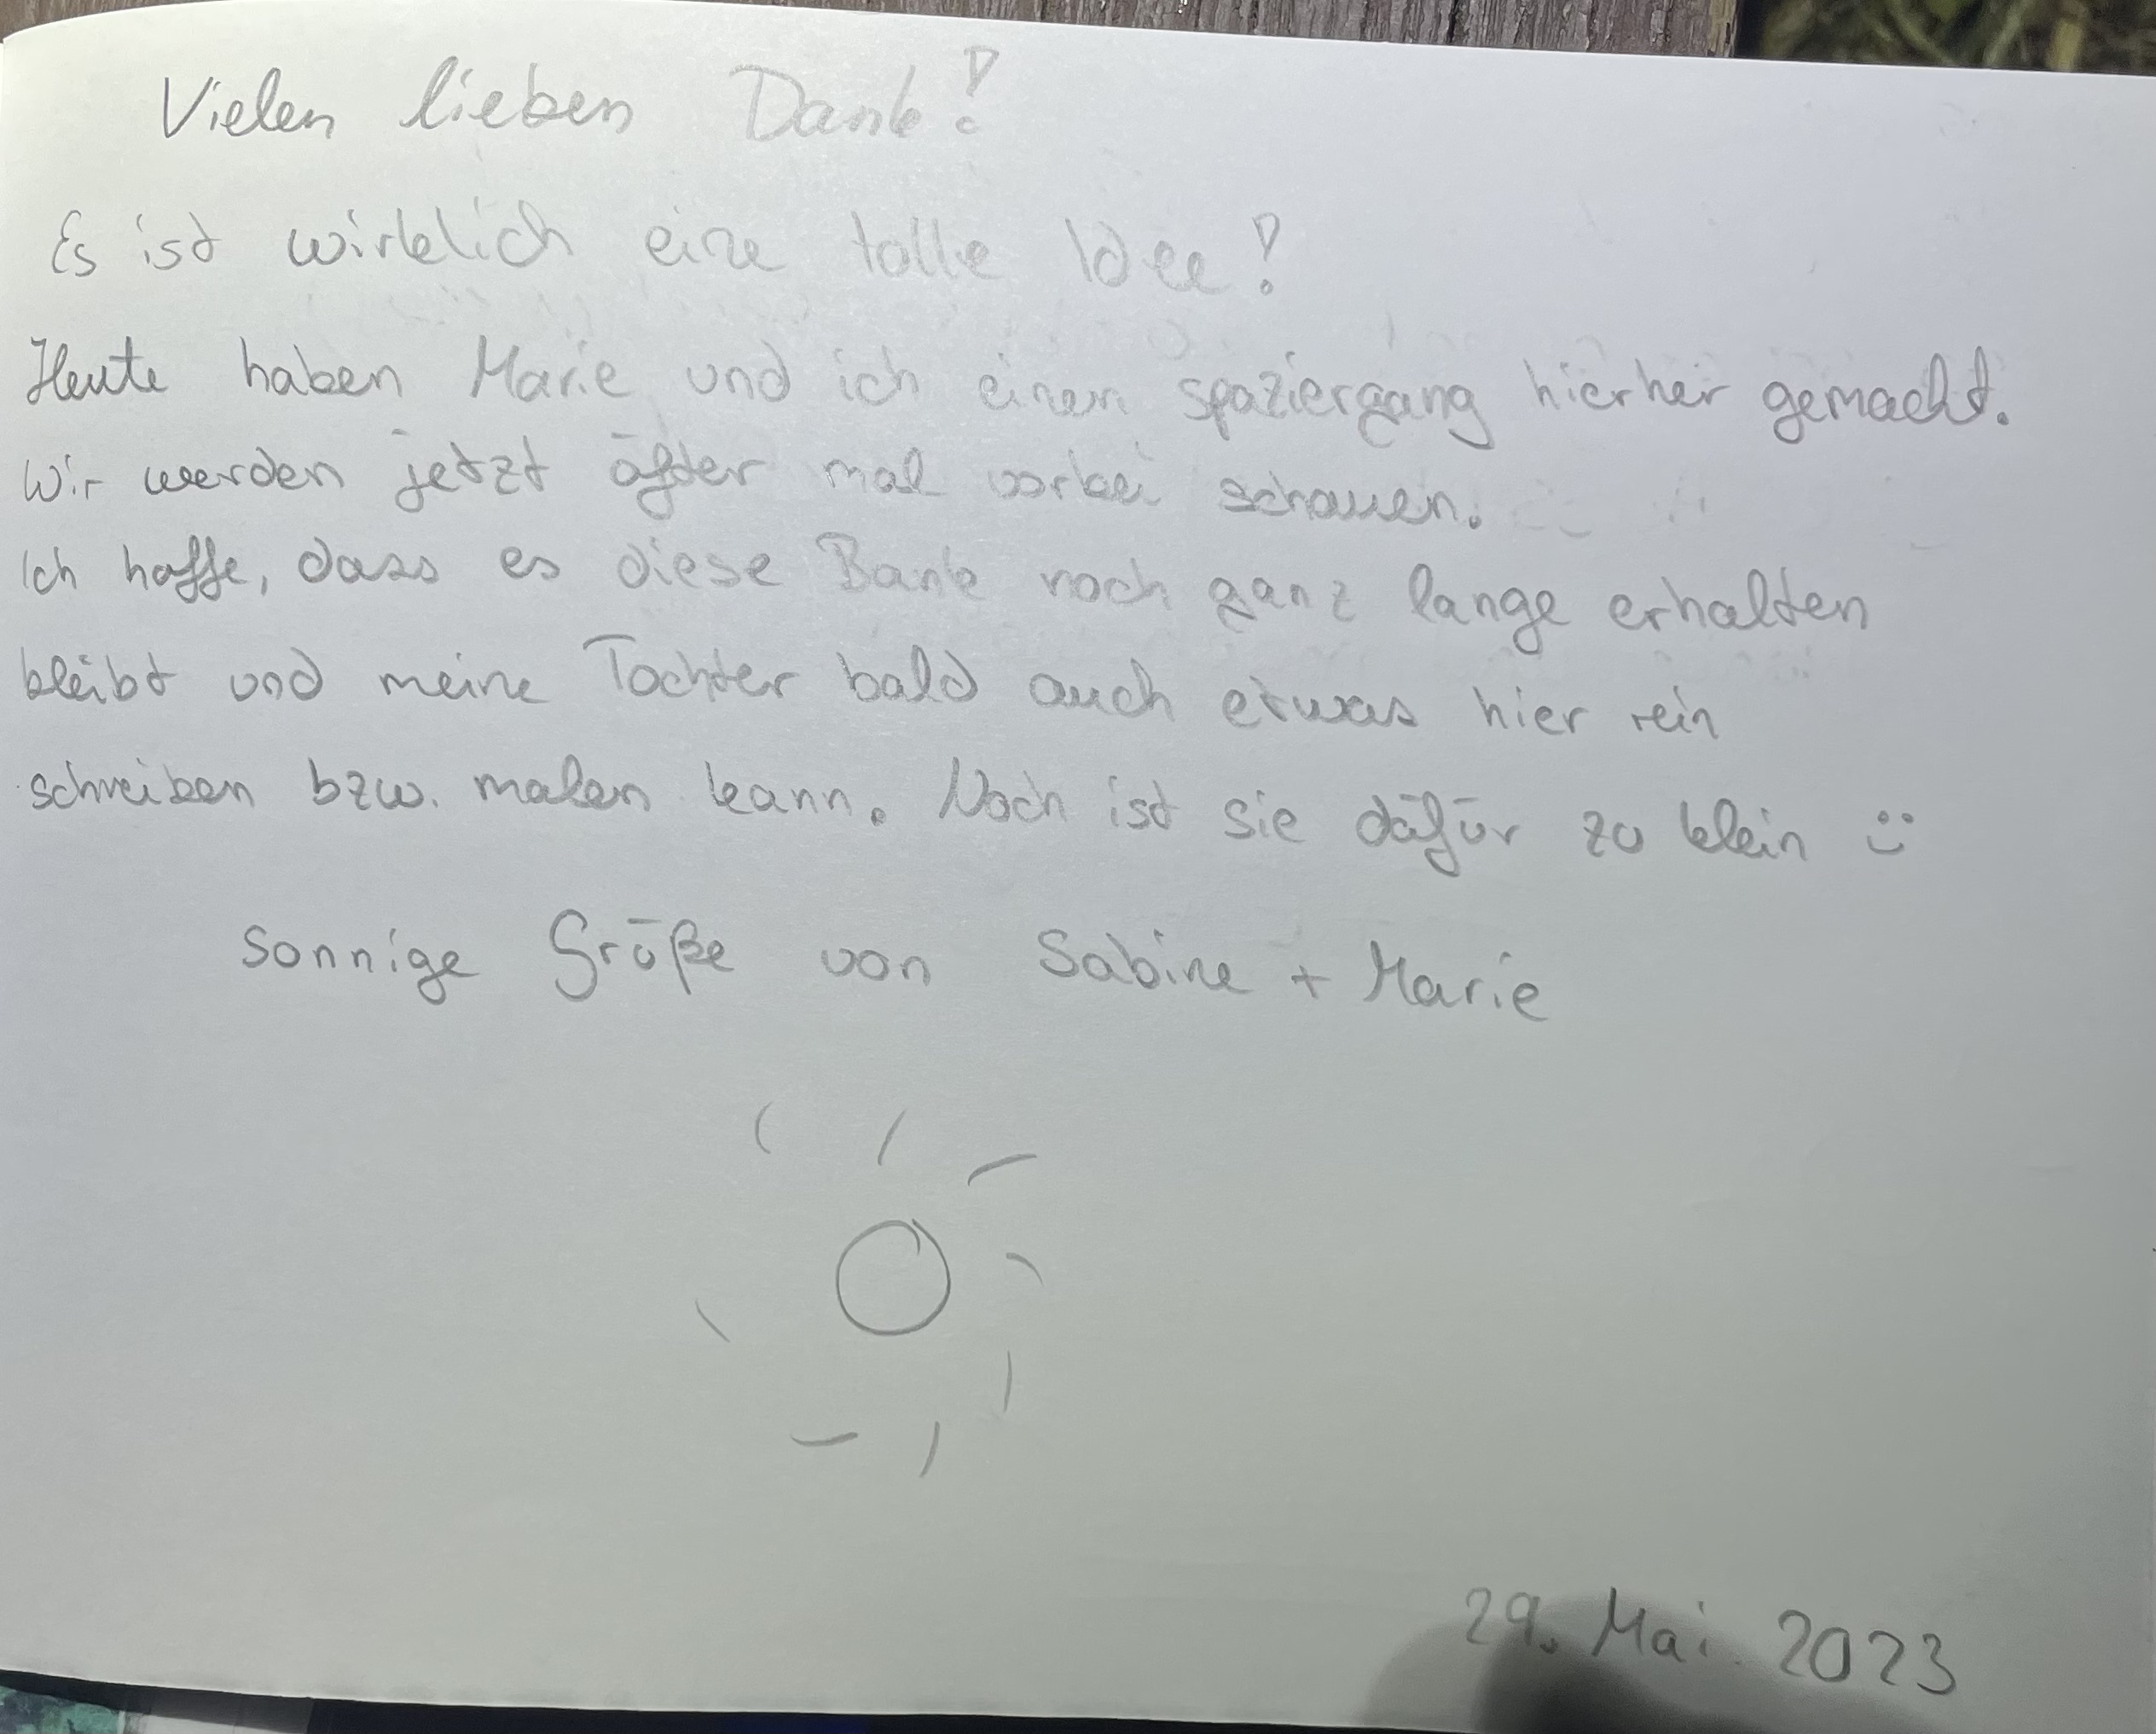 Vielen lieben Dank!
Es ist wirklich eine tolle Idee!
Heute haben Marie und ich einen spaziergang hierher gemacht.
Wir werden jetzt öfter mal vorbei schauen.
Ich hoffe, dass es diese Bank noch ganz lange erhalten
bleibt und meine Tochter bald auch etwas hier rein
schreiben bzw. malen kann. Noch ist sie dafür zu klein :)
Sonnige Grüße von Sabine + Marie
29. Mai 2023